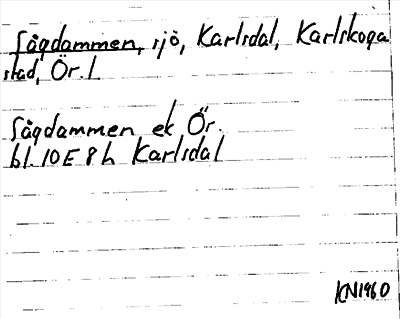 Sågdammen, sjö, Karlsdal, Karlskoga
stad, Ör. l.
Sågdammen ek. Ör.
bl. 10E 8h Karlsdal
KN1960